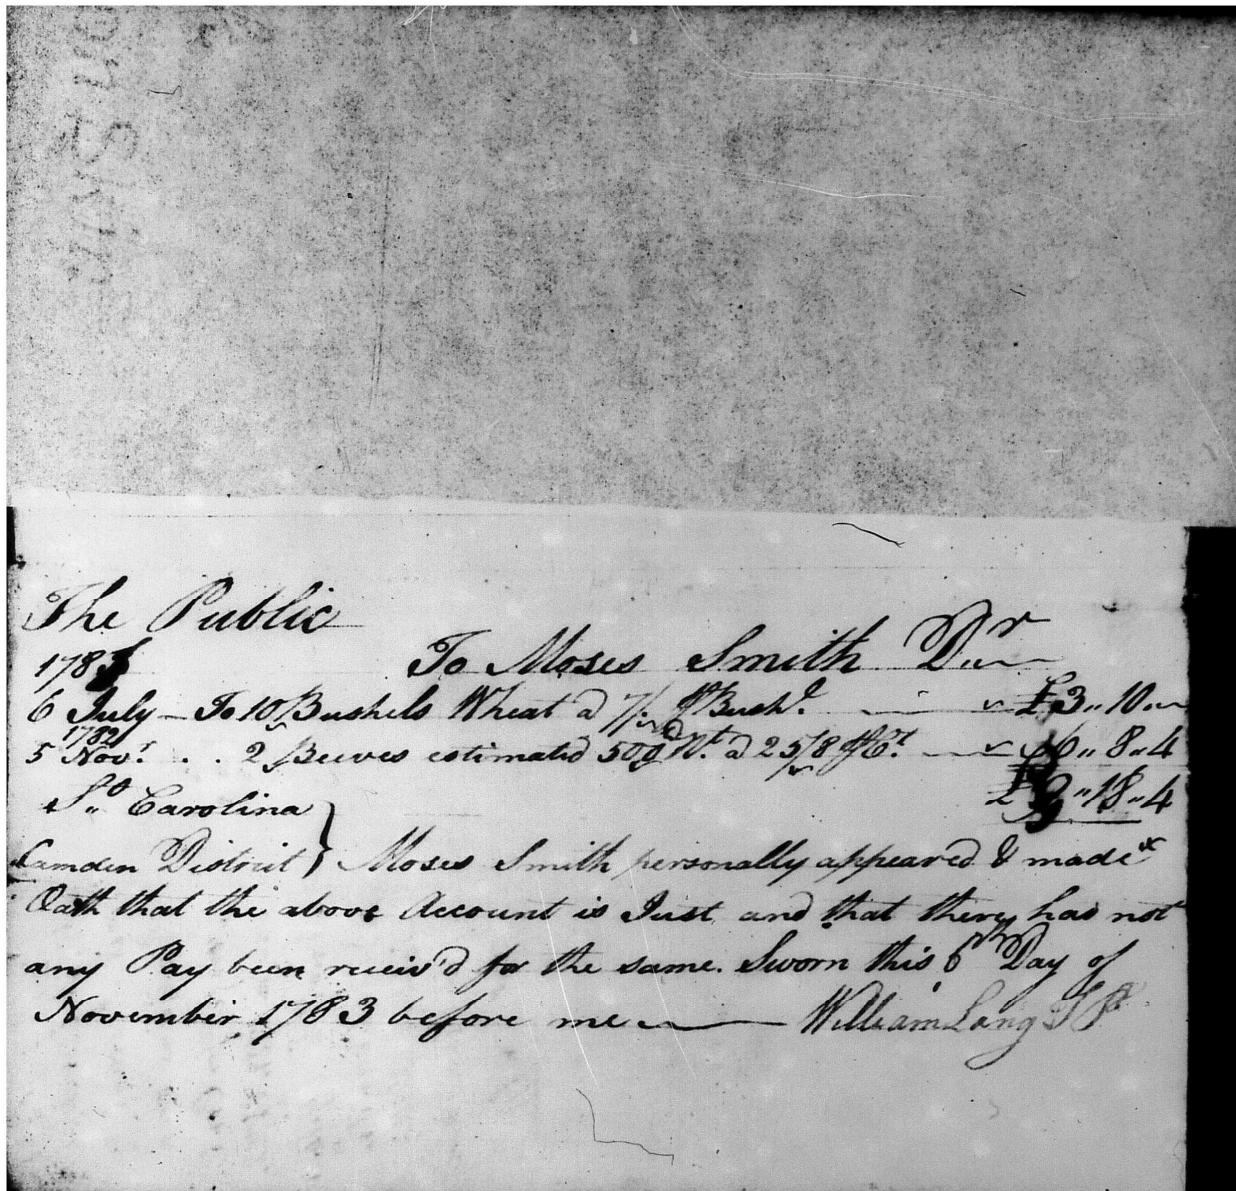 The Public
To Moses Smith Dr
178
6 July – To 10 Bushels Wheat a 7/. ⅌ Bushl. £3,,10,,
1782
5 Novr. . . 2 Beeves estimated 500 Wt. a 25/8 ⅌ Ct. 6,,8,,4
£9,,18,,4
So. Carolina }
Camden District } Moses Smith personally appeared & made
Oath that the above Account is Just and that there has not
any Pay been receiv'd for the same. Sworn this 6th Day of
November, 1783 before me William Lang J P